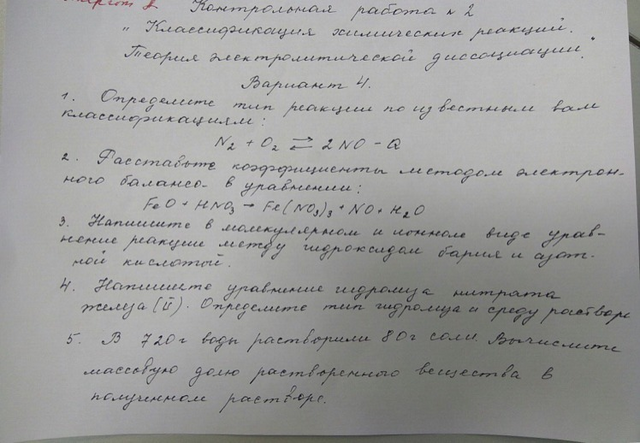 Контрольная работа № 2
"Классификация химических реакций.
Теория электролитической диссоциации."
Вариант 4.
1. Определите тип реакции по известным вам
классификациям:
N₂ + O₂ ⇄ 2NO - Q
2. Расставьте коэффициенты методом электрон-
ного баланса в уравнении:
FeO + HNO₃ → Fe(NO₃)₃ + NO + H₂O
3. Напишите в молекулярном и ионном виде урав-
нение реакции между гидроксидом бария и азот-
ной кислотой.
4. Напишите уравнение гидролиза нитрата
железа (II). Определите тип гидролиза и среду раствора
5. В 720 г воды растворили 80 г соли. Вычислите
массовую долю растворенного вещества в
полученном растворе.